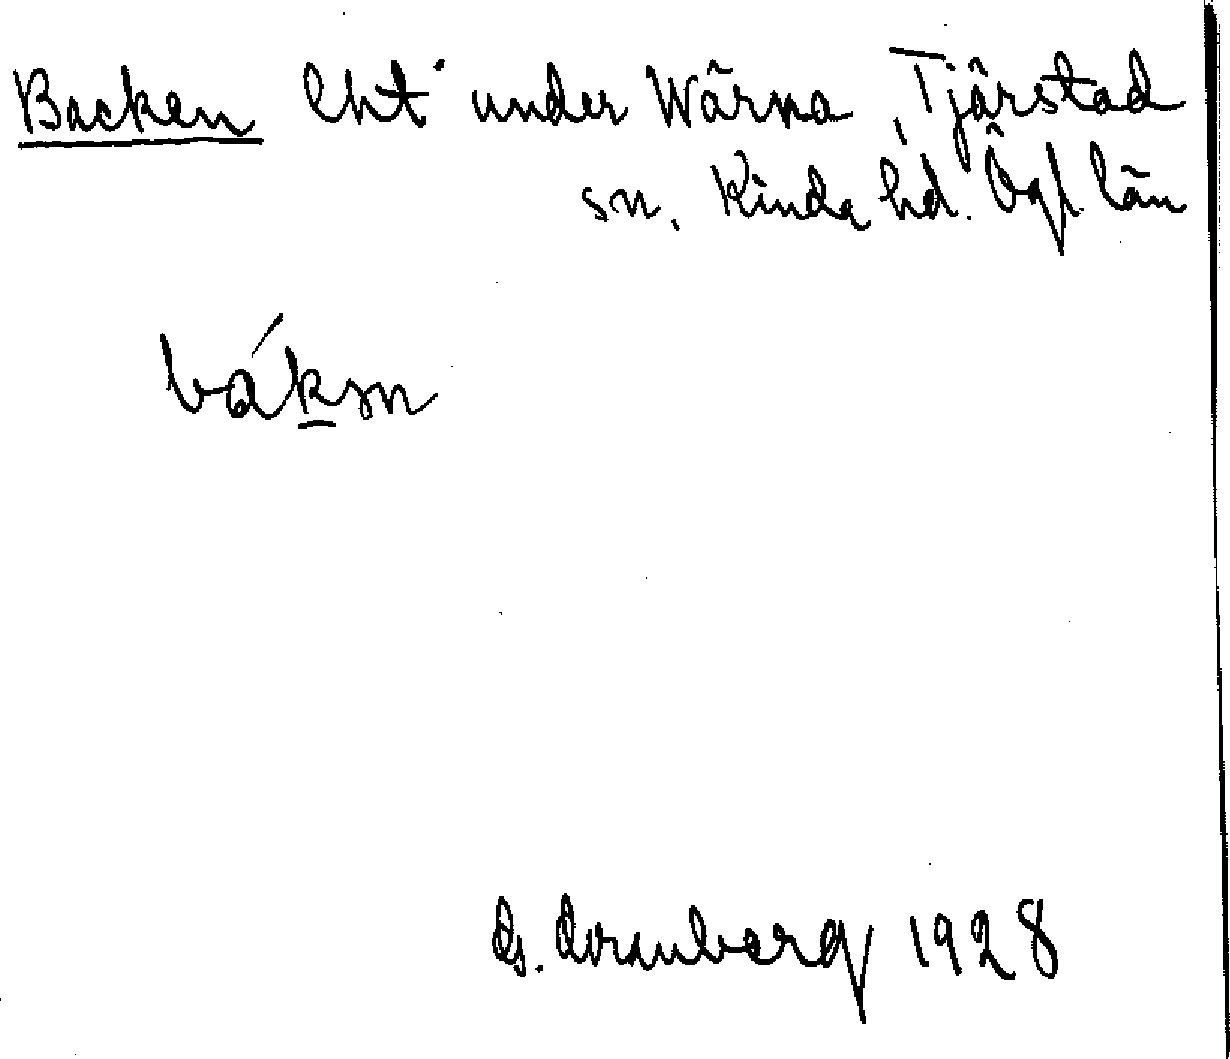 Backen lht under Wärna, Tjärstad
sn. Kinda hd. Ögl. län
bákən
1928